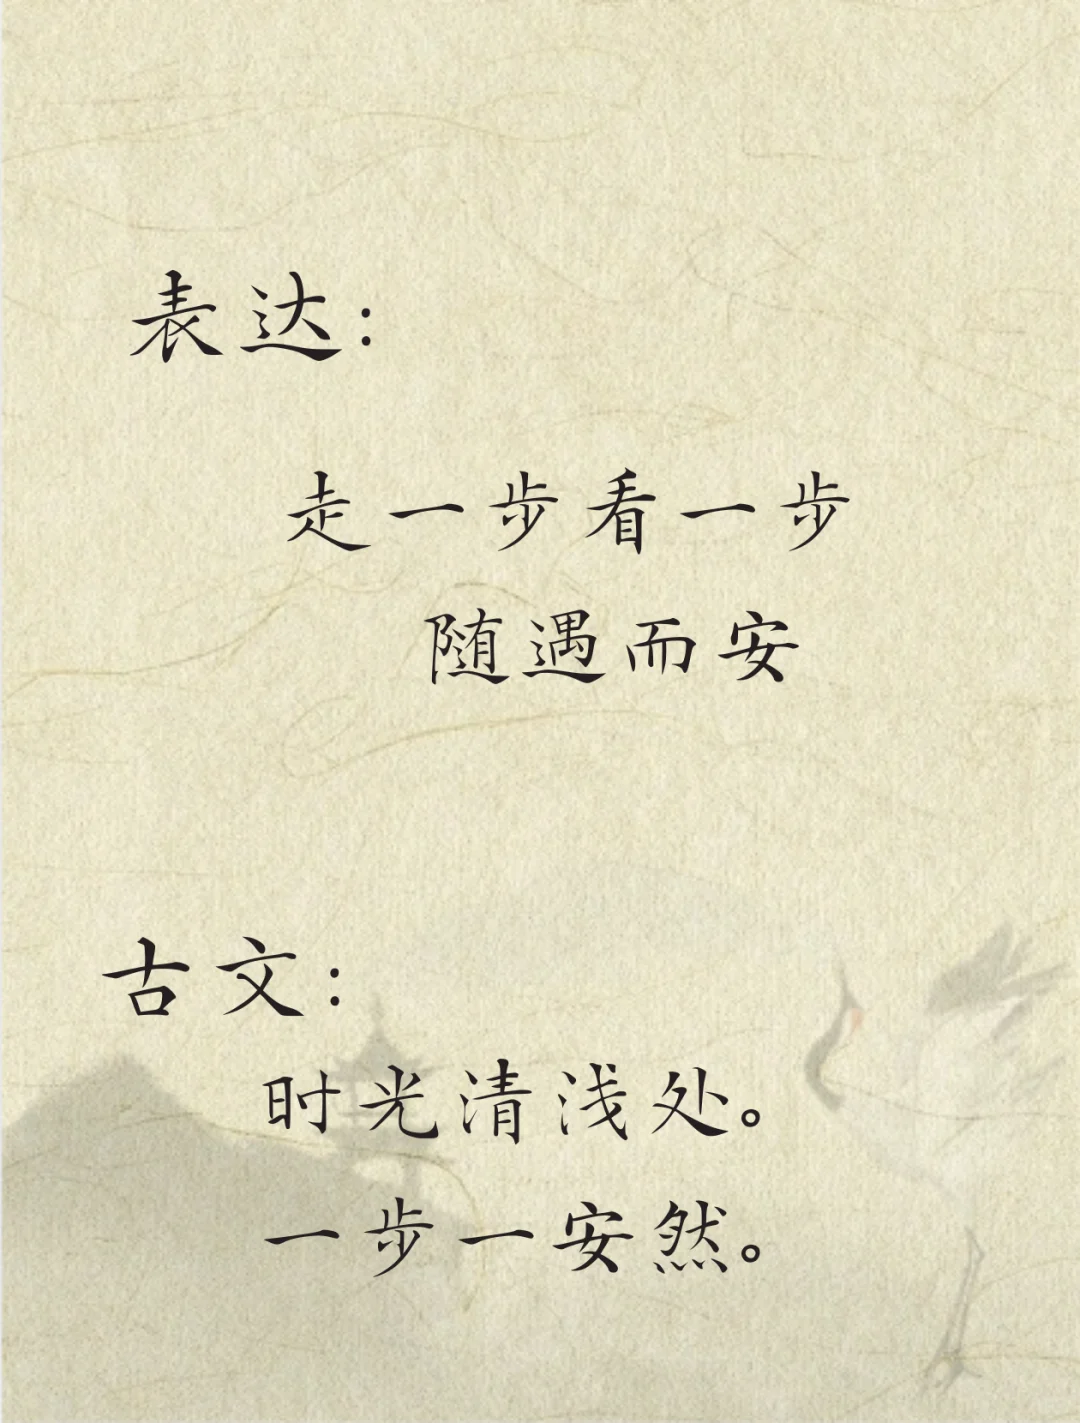 表达:
走一步看一步
随遇而安
古文:
时光清浅处。
一步一安然。